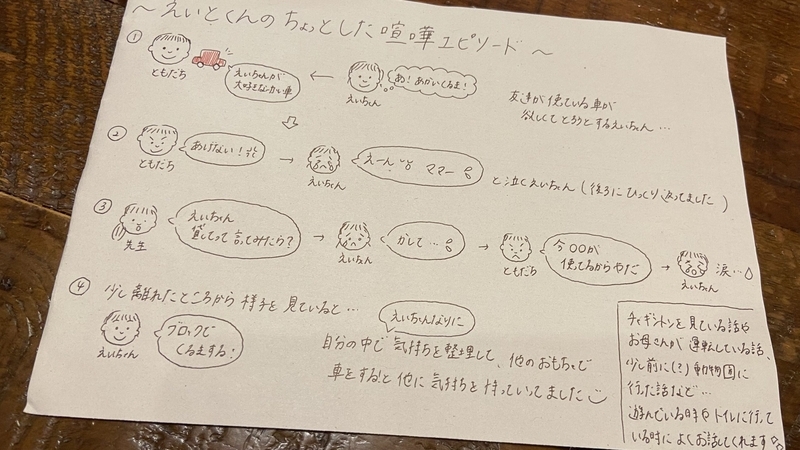 ～えいとくんのちょっとした喧嘩エピソード～
①
ともだち
えいちゃんが
大好きな赤い車
←
あ！あかいくるま！
えいちゃん
友達が使っている車が
欲しくてとろうとするえいちゃん…
②
ともだち
あげない！
→
えいちゃん
えーん ママー
と泣くえいちゃん（後ろにひっくり返ってました）
③
先生
えいちゃん
貸してって言ってみたら？
→
えいちゃん
かして…
→
ともだち
今〇〇が
使ってるからやだ
→
えいちゃん
涙…
④ 少し離れたところから様子を見ていると…
えいちゃん
ブロックで
くるまする！
えいちゃんなりに
自分の中で気持ちを整理して、他のおもちゃで
車をすると他に気持ちを持っていってました
チャギントンを見ている話や
お母さんが運転している話、
少し前に（？）動物園に
行った話など…
遊んでいる時やトイレに行って
いる時によくお話してくれます